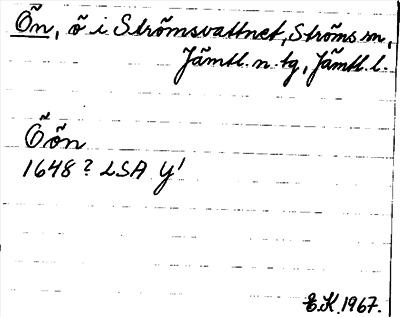 Ön, ö i Strömsvattnet, Ströms sn,
Jämtl. n. tg, Jämtl. l.
Öön
1648? LSA Y'
E.K. 1967.